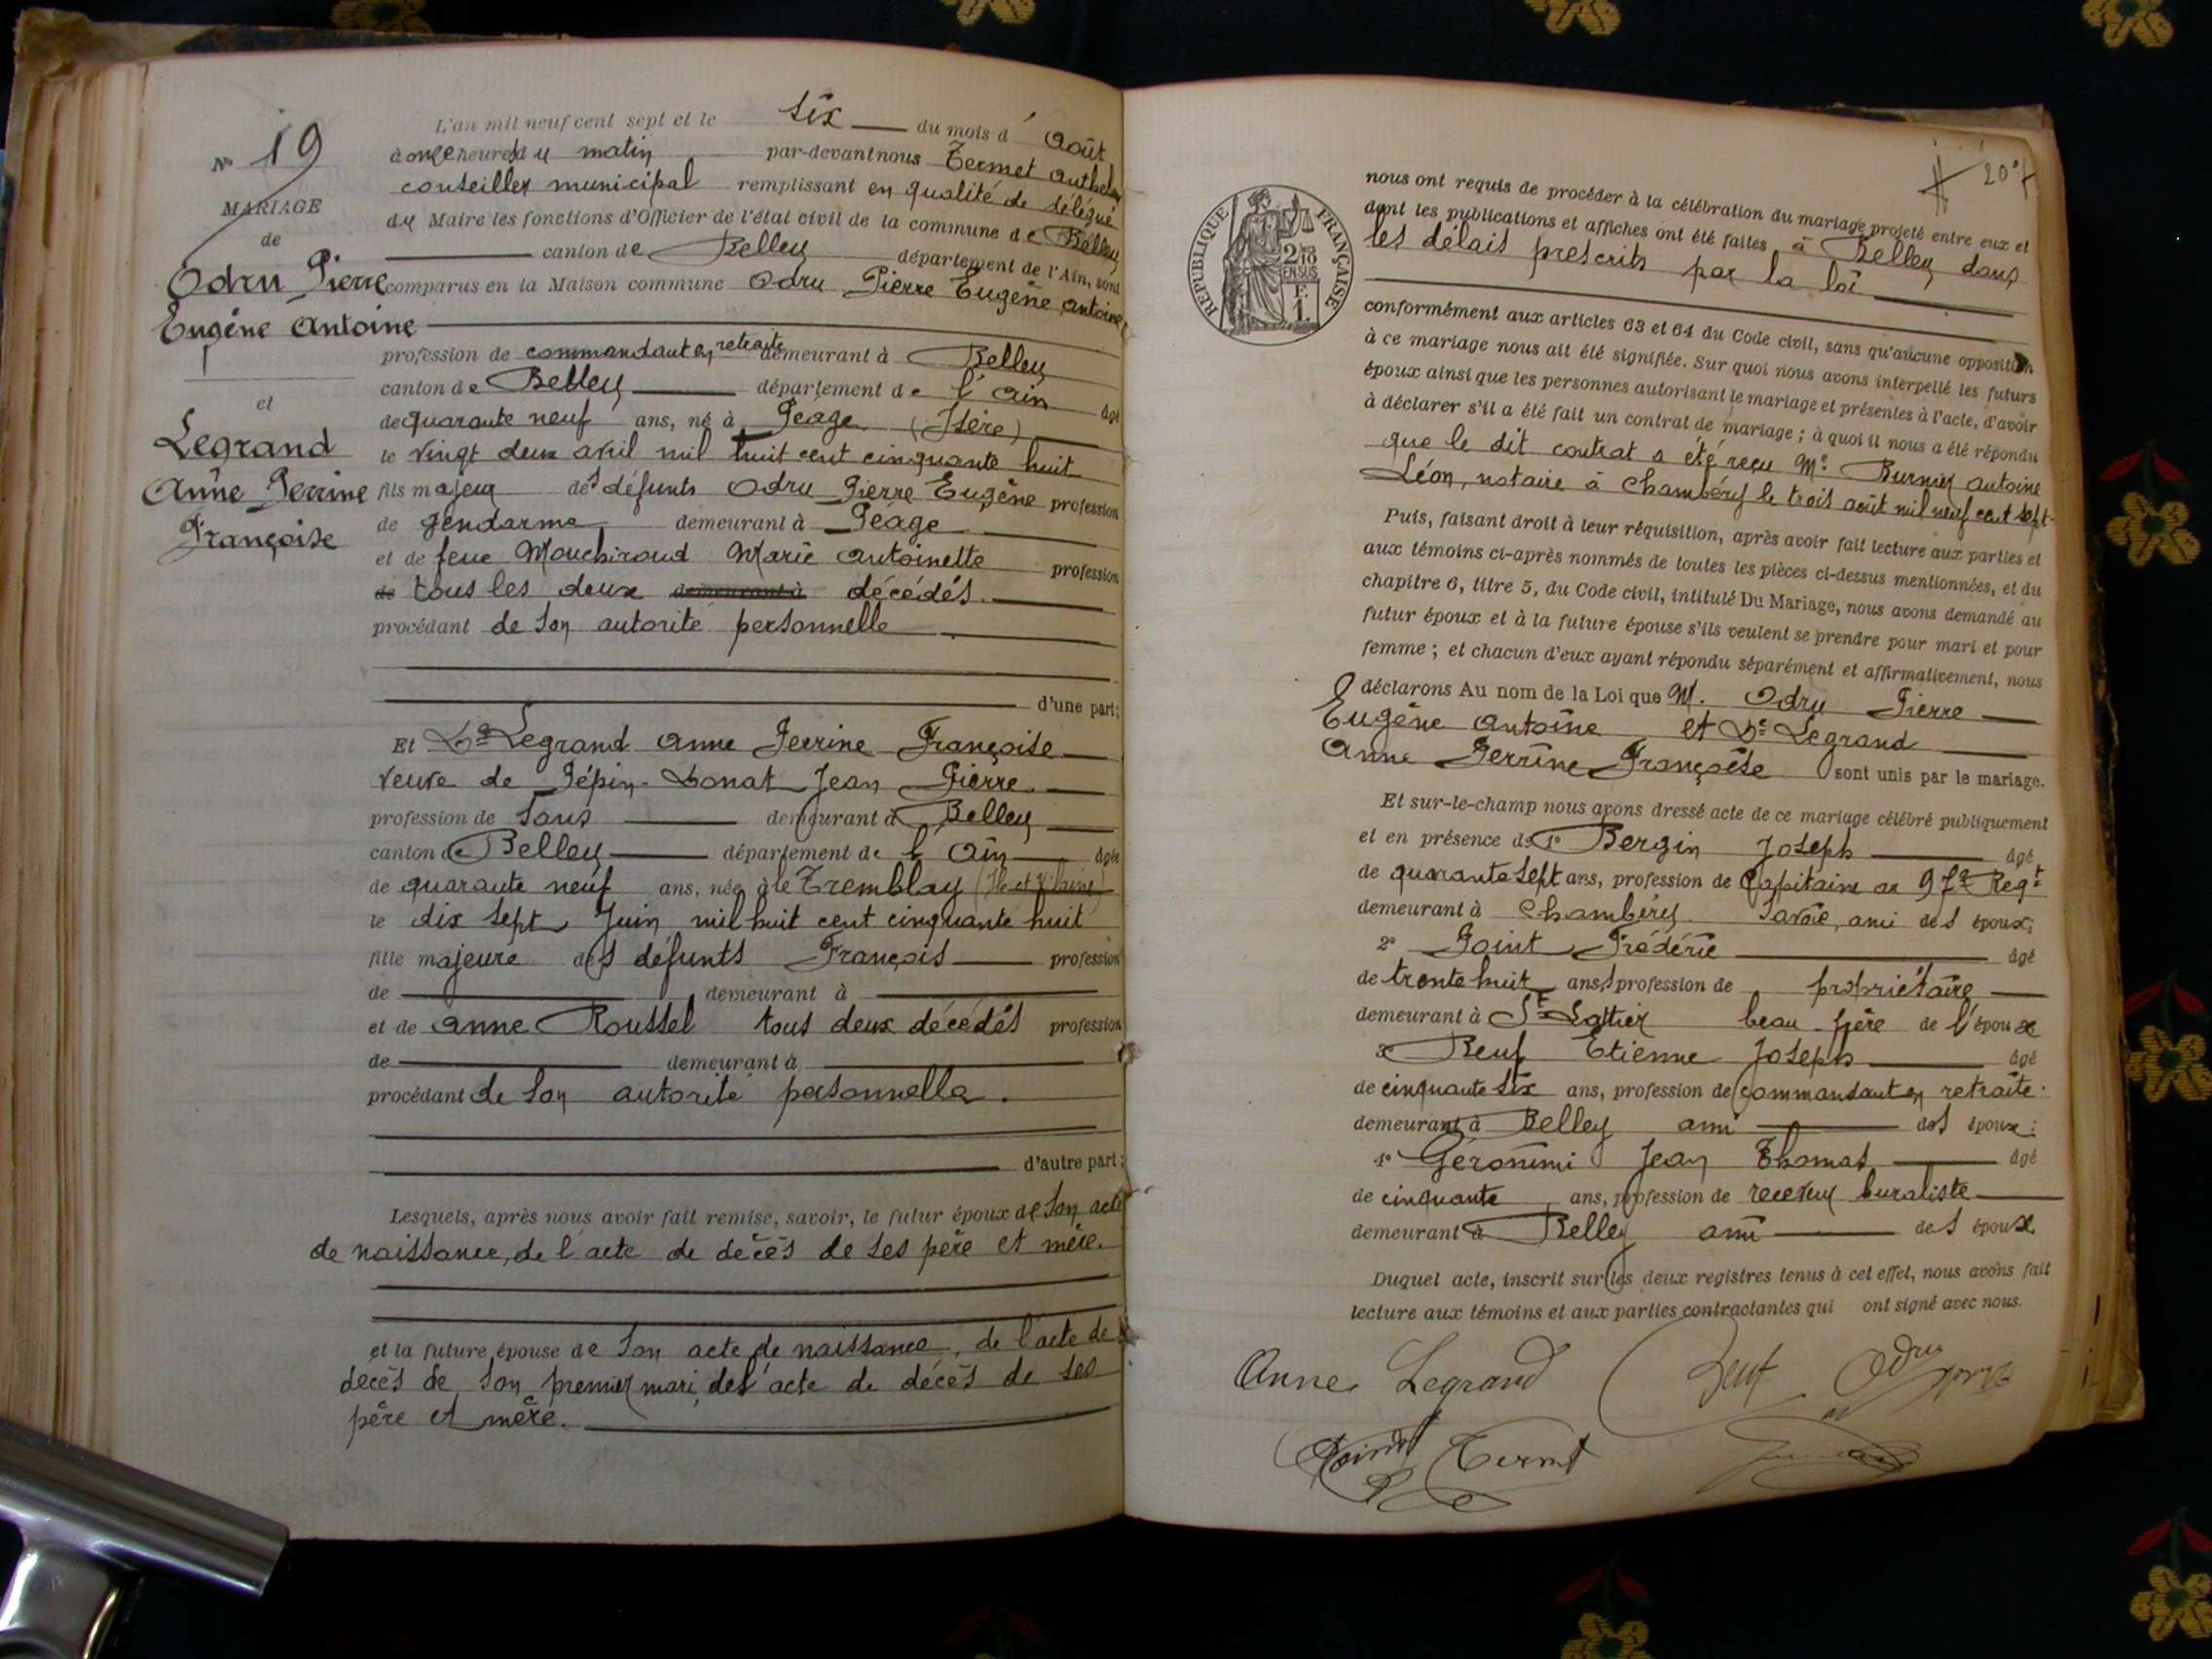 N° 19
MARIAGE
de
Odru Pierre
Eugène Antoine
et
Legrand
Anne Perrine
Françoise
L'an mil neuf cent sept et le six du mois d'Août
à onze heures du matin par-devant nous Termet Anthelme
conseiller municipal remplissant en qualité de délégué
du Maire les fonctions d'Officier de l'état civil de la commune de Belley
canton de Belley département de l'Ain, sont
comparus en la Maison commune Odru Pierre Eugène Antoine
profession de commandant en retraite demeurant à Belley
canton de Belley département de l'Ain âgé
de quarante neuf ans, né à Péage (Isère)
le vingt deux avril mil huit cent cinquante huit
fils majeur des défunts Odru Pierre Eugène profession
de gendarme demeurant à Péage
et de feue Mouchiroud Marie Antoinette profession
de tous les deux demeurant à décédés.
procédant de son autorité personnelle
d'une part;
Et De Legrand Anne Perrine Françoise
veuve de Pépin-Donat Jean Pierre.
profession de sans demeurant à Belley
canton de Belley département de l'Ain âgée
de quarante neuf ans, née à le Tremblay (Ile et Vilaine)
le dix sept Juin mil huit cent cinquante huit
fille majeure des défunts François profession
de demeurant à
et de Anne Roussel tous deux décédés profession
de demeurant à
procédant de son autorité personnelle.
d'autre part;
Lesquels, après nous avoir fait remise, savoir, le futur époux de son acte
de naissance, de l'acte de décès de ses père et mère.
et la future épouse de son acte de naissance, de l'acte de
décès de son premier mari, de l'acte de décès de ses
père et mère.
RÉPUBLIQUE FRANÇAISE
2/10
EN SUS
F.
1.
nous ont requis de procéder à la célébration du mariage projeté entre eux et
dont les publications et affiches ont été faites à Belley dans
les délais prescrits par la loi
conformément aux articles 63 et 64 du Code civil, sans qu'aucune opposition
à ce mariage nous ait été signifiée. Sur quoi nous avons interpellé les futurs
époux ainsi que les personnes autorisant le mariage et présentes à l'acte, d'avoir
à déclarer s'il a été fait un contrat de mariage; à quoi il nous a été répondu
que le dit contrat a été reçu Me Burnier Antoine
Léon, notaire à Chambéry le trois août mil neuf cent sept.
Puis, faisant droit à leur réquisition, après avoir fait lecture aux parties et
aux témoins ci-après nommés de toutes les pièces ci-dessus mentionnées, et du
chapitre 6, titre 5, du Code civil, intitulé Du Mariage, nous avons demandé au
futur époux et à la future épouse s'ils veulent se prendre pour mari et pour
femme; et chacun d'eux ayant répondu séparément et affirmativement, nous
déclarons Au nom de la Loi que M. Odru Pierre
Eugène Antoine et De Legrand
Anne Perrine Françoise sont unis par le mariage.
Et sur-le-champ nous avons dressé acte de ce mariage célébré publiquement
et en présence de 1° Bergin Joseph âgé
de quarante sept ans, profession de Capitaine au 97e Regt
demeurant à Chambéry Savoie, ami des époux;
2° Point Frédéric âgé
de trente huit ans, profession de propriétaire
demeurant à St Lattier beau-frère de l'époux
3° Beuf Etienne Joseph âgé
de cinquante six ans, profession de commandant en retraite.
demeurant à Belley ami des époux;
4° Géronimi Jean Thomas âgé
de cinquante ans, profession de receveur buraliste
demeurant à Belley ami des époux
Duquel acte, inscrit sur les deux registres tenus à cet effet, nous avons fait
lecture aux témoins et aux parties contractantes qui ont signé avec nous.
Anne Legrand Beuf Odru
Point Termet